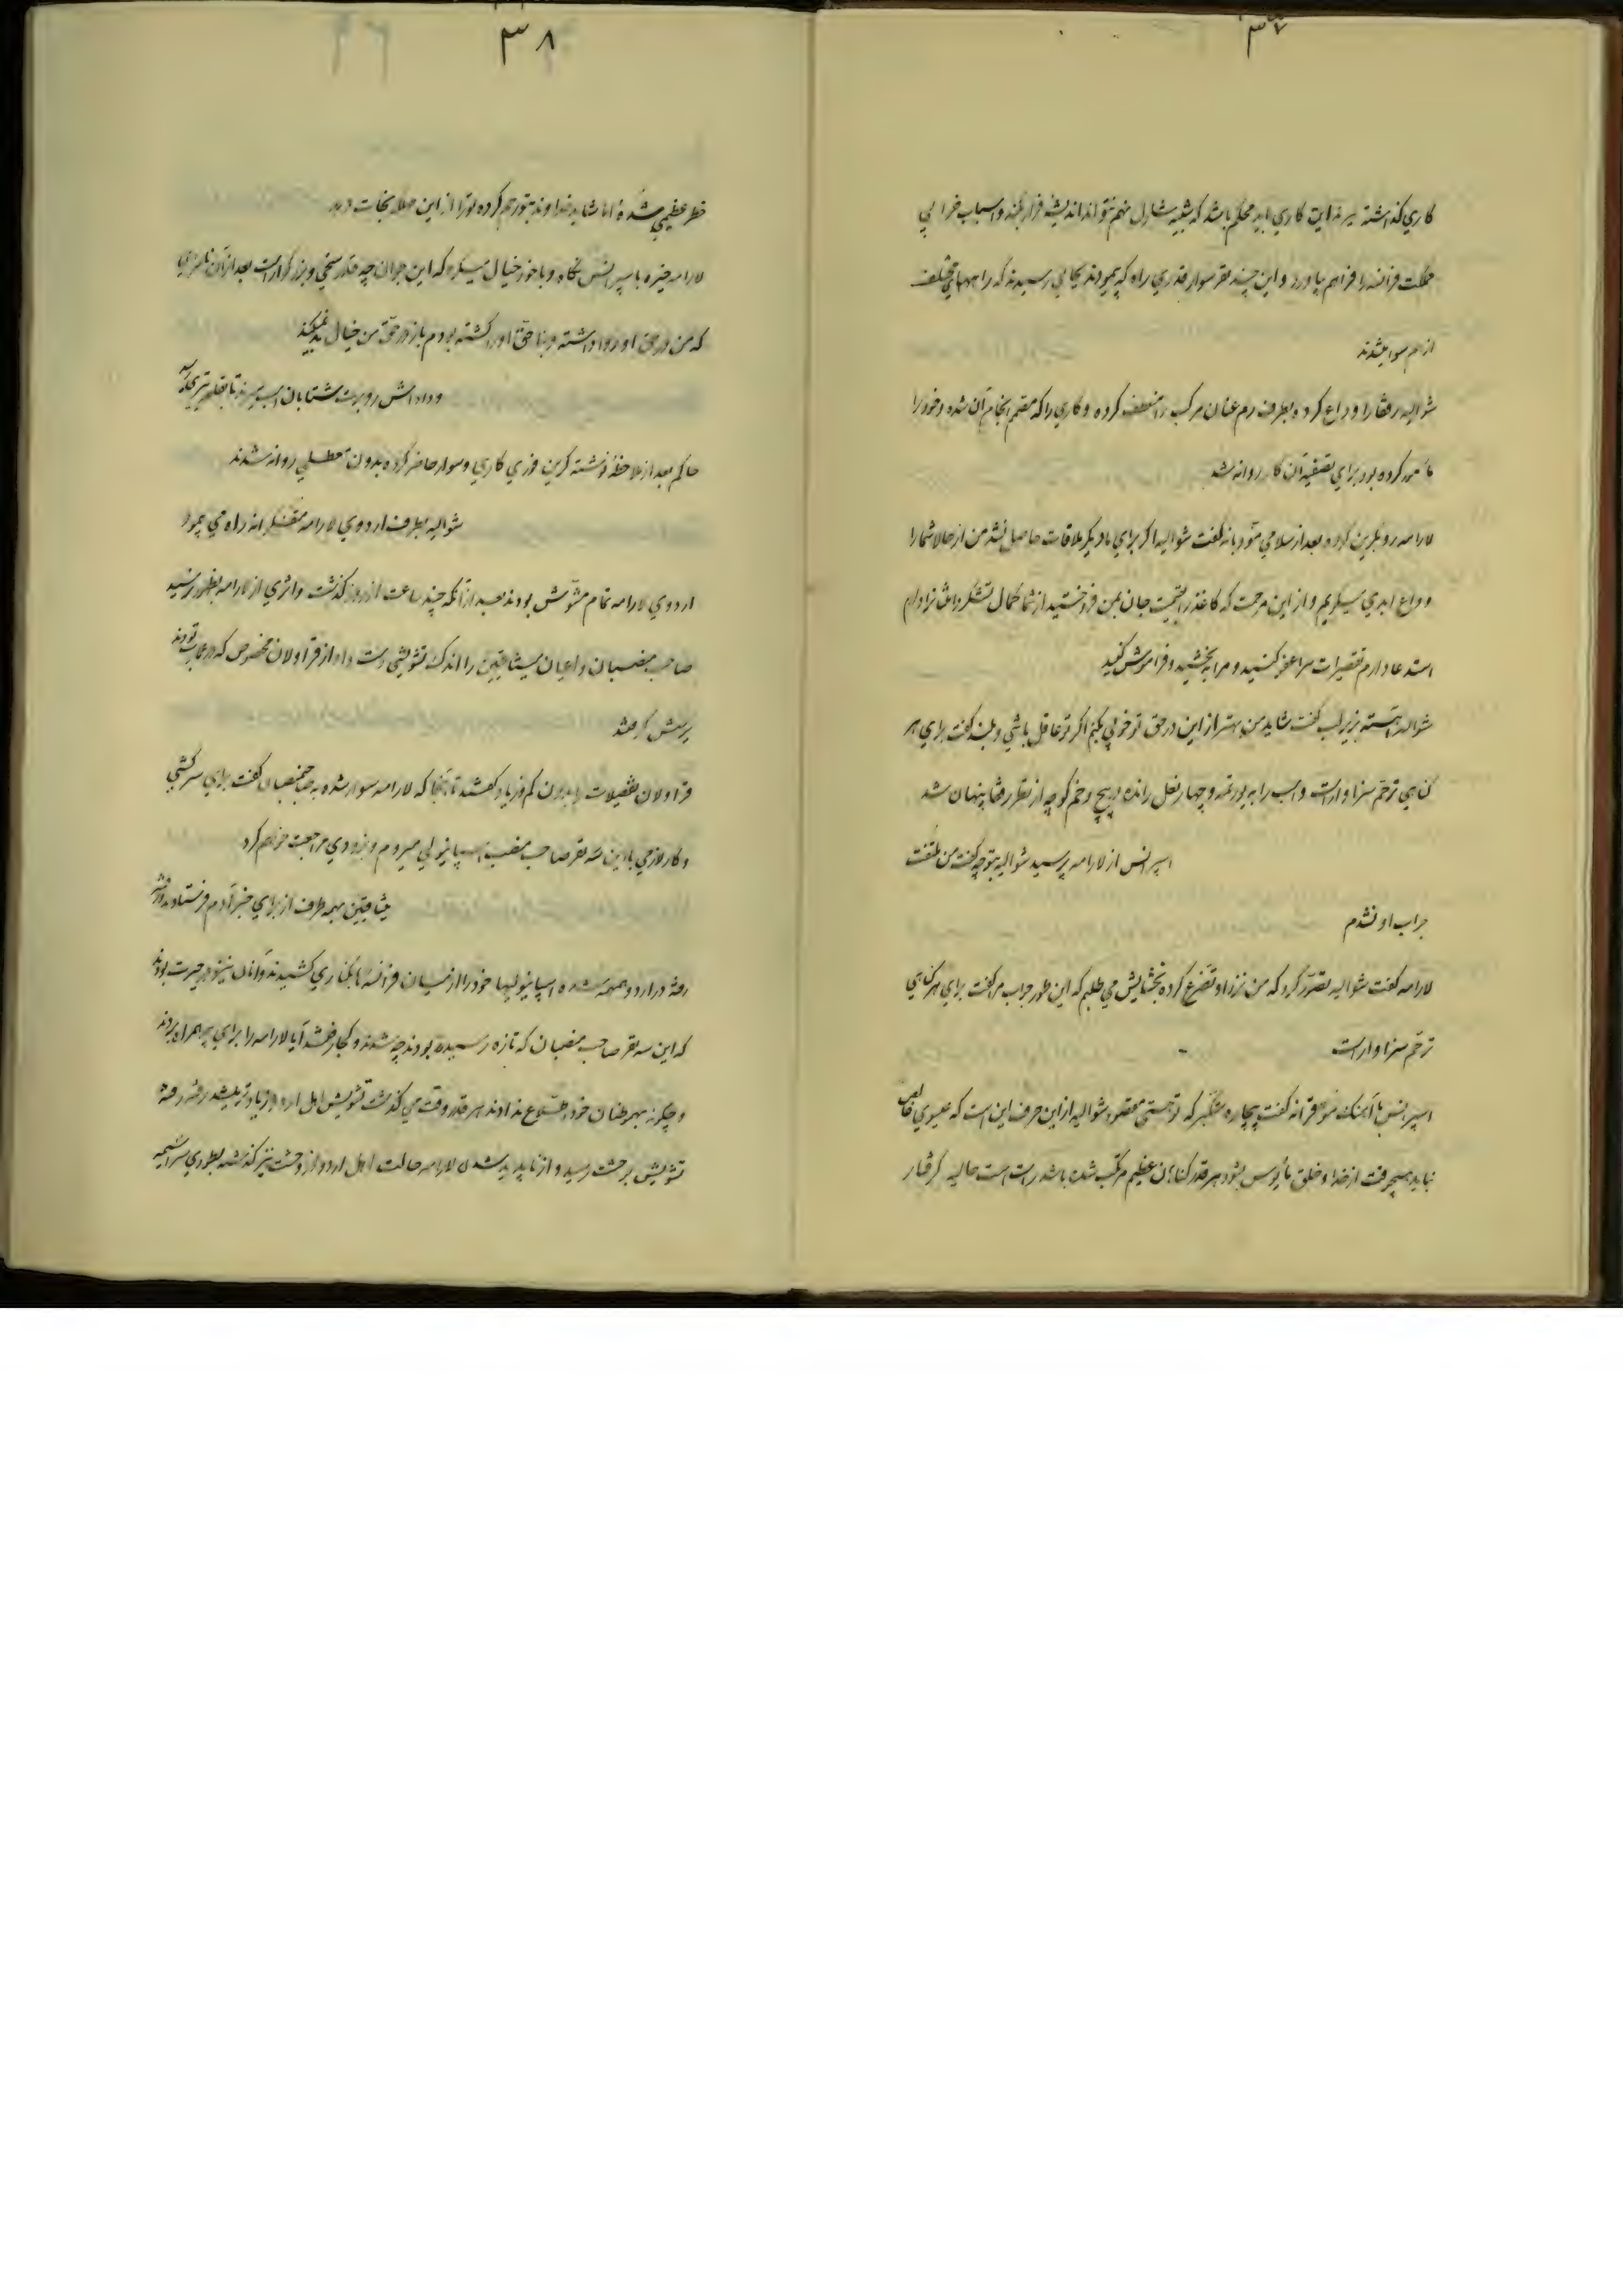 ۳۷
کاري کذاشته بودند این کاري باید محکم باشد که شبیه شارل نهم نتواند اندیشه فرار بکند و اسباب خرابي
مملکت فرانسه را فراهم بیاورد و این چند نفر سوار قدري راه که پیمودند بجایي رسیدند که راههاي مختلف
از هم سوا میشدند
شوالیه رفقا را وداع کرده بطرف رم عنان مرکب را منعطف کرده و کاري را که مصمم انجام آن شده و خود را
مأمور کرده بود براي تصفیه آن کار روانه شد
لارامه رو بگرین کرده بعد از سلامي مؤدبانه گفت شوالیه اگر براي ما دیگر ملاقات حاصل نشد من از حالا شما را
وداع ابدي میگویم و از این مرحمت که کاغذ را بقیمت جان بمن فروختید از شما کمال تشکر و امتنان را دارم
استدعا دارم تقصیرات مرا عفو کنید و مرا ببخشید و فراموش کنید
شوالیه آهسته بزیر لب گفت شاید من بهتر از این در حق تو خوبي بکنم اگر تو عاقل باشي و بلند گفت براي هر
گناهي ترحم سزاوار است و اسب را به یورتمه و چهار نعل رانده در پیچ و خم کوچه از نظر رفقا پنهان شد
اسپرانس از لارامه پرسید شوالیه بتو چه گفت من ملتفت
جواب او نشدم
لارامه گفت شوالیه تصور کرد که من نزد او تضرع کرده بخشایش مي طلبم که این طور جواب مرا گفت براي هر گناهي
ترحم سزاوار است
اسپرانس با آهنگ موقرانه گفت بیچاره متکبر که تو هستي مقصود شوالیه از این حرف این است که عیسوي خالص
نباید هیچوقت از خدا و خلق مأیوس بشود هر قدر گناهان عظیم مرتکب شده باشد راست است حالیه گرفتار
۳۸
خطر عظیمي شدهٔ اما شاید خداوند بتو رحم کرده تو را از این مهلکه نجات دهد
لارامه خیره باسپرانس نگاه و با خود خیال میکرد که این جوان چه قدر سخي و بزرگوار است بعد از آن نامردي
که من در حق او روا داشته و بناحق او را کشته بودم باز در حق من خیال بد نمیکند
حاکم بعد از ملاحظهٔ نوشته گرین فوري کاري و سوار حاضر کرده بدون معطلي روانه شدند
شوالیه بطرف اردوي لارامه متفکرانه راه مي پیمود
اردوي لارامه تمام مشوش بودند بعد از آنکه چند ساعت از روز گذشت و اثري از لارامه بظهور نرسید
صاحب منصبان و اعیان میثاقیین را اندک تشویشي دست داد از قراولان مخصوص که در عقب بودند
پرسش کردند
قراولان تفصیلات را بدون کم و زیاد گفتند تا آنجا که لارامه سوار شده به صاحبمنصبان گفت براي سرکشي
و کار لازمي با این سه نفر صاحب منصب اسپانیولي میروم و بزودي مراجعت خواهم کرد
میثاقیین بهمه طرف از براي خبر آدم فرستادند
رفته در اردو همهمه شده اسپانیولیها خود را از میان فرانسه‌ها بکناري کشیدند و آنان نیز در حیرت بودند
که این سه نفر صاحب منصبان که تازه رسیده بودند چه شدند و کجا رفتند آیا لارامه را براي چه همراه بردند
و چگونه بهموطنان خود اطلاع ندادند هر قدر وقت مي گذشت تشویش اهل اردو زیادتر میشد رفته رفته
تشویش بوحشت رسید و از ناپدید شدن لارامه حالت اهل اردو از وحشت نیز گذشته بطوري سراسیمه